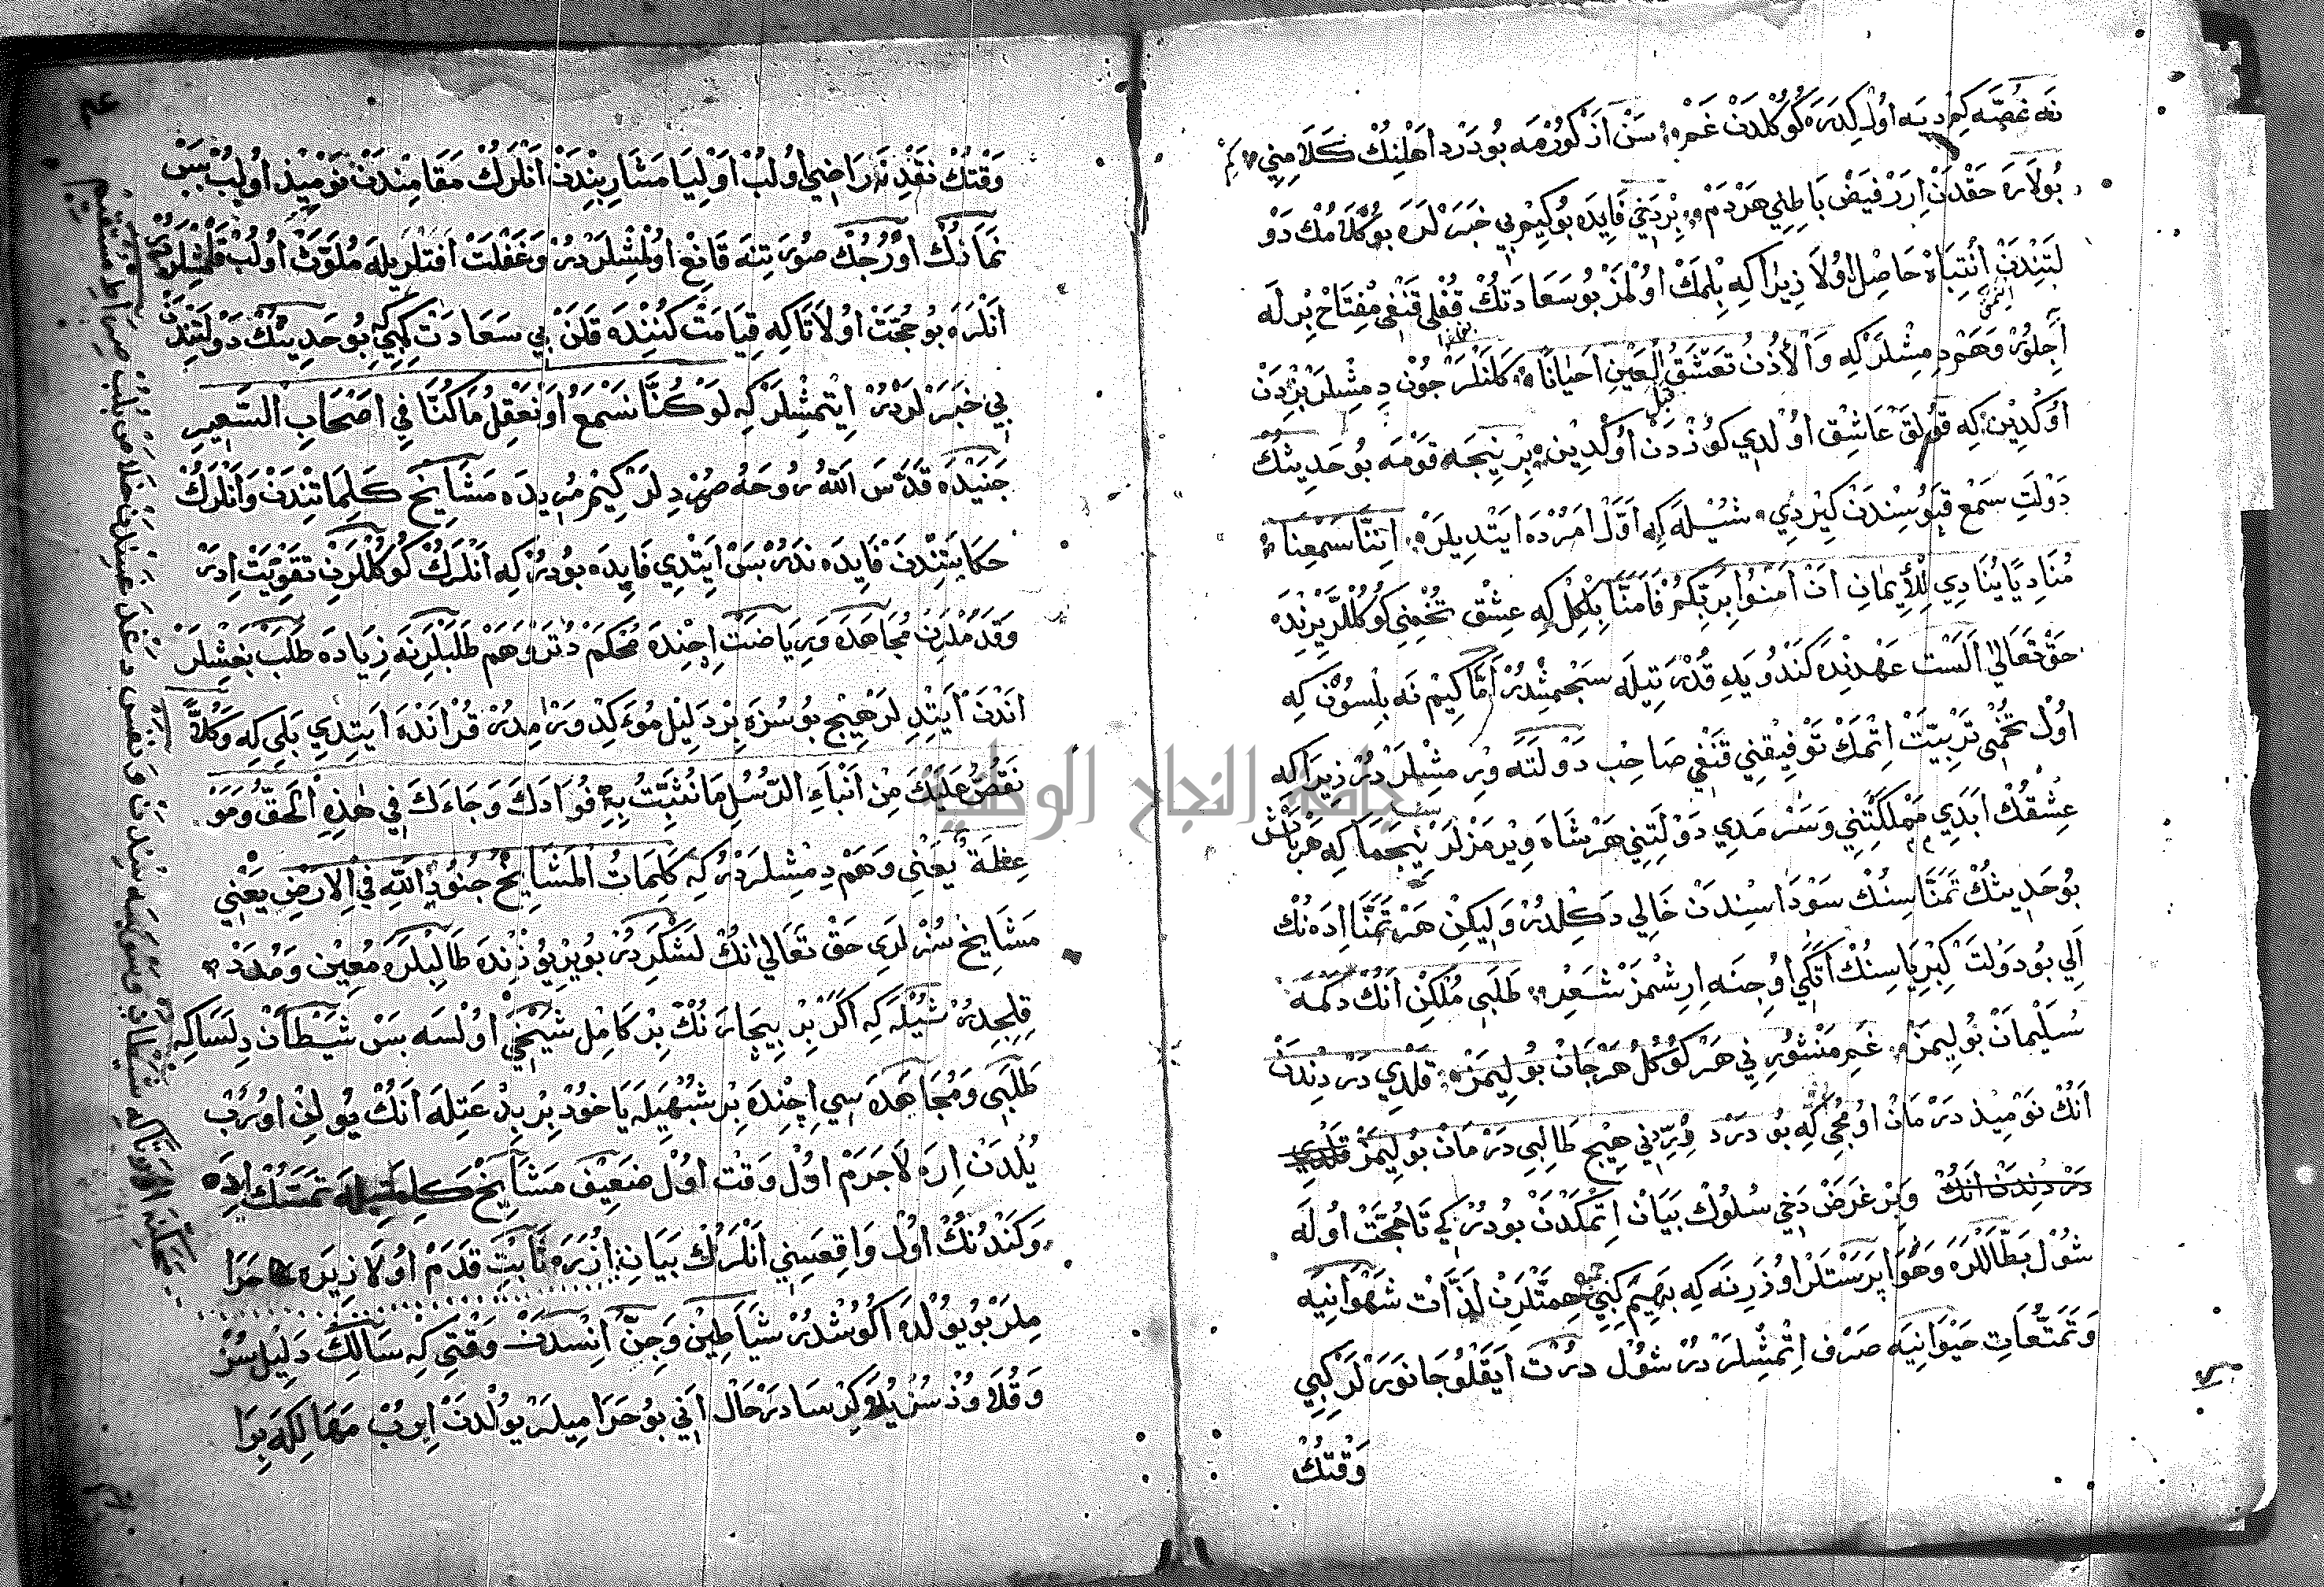 نَه غُصَّه كِم دِيَه اُول كِدَرَه كُوكُلدَنْ غَمْ سَنْ اَزْ كُورْمَه بُو دَرْد اَهْلِنِكْ كَلَامِنِي كِم
بُولَارَه حَقْدَنْ اِرَرْ فَيْضْ بَاطِنِي هَرْدَمْ بِرْدَخِي فَايِدَه بُو كِيْم بِي خَبَرْلَرَه بُو كَلَامُكْ دَوْ
لَتِنْدَنْ اِنْتِبَاهْ حَاصِلْ اُولَا زِيرَا كِه بِلِمَكْ اُولْمَزْ بُو سَعَادَتُكْ قُفْلِي قَنْغِي مِفْتَاحْ بِرلَه
اَجِلُورْ وَهَمْ دِمِشْلَرْ كِه وَالْاُذُنُ تَعْشَقُ قَبْلَ الْعَيْنِ اَحْيَانًا كَلَنْلَرْ جُون دِمِشْلَرْ بِزْدَنْ
اُوكْدِينْ كِه قُولَقْ عَاشِقْ اُولْدِي كُوزْدَنْ اُوكْدِينْ بِرْنِيجَه قَوْمَه بُو حَدِيثُكْ
دَوْلَتِ سَمْعْ قَپُوسِنْدَنْ كِيرْدِي شُيْلَه كِه اَوَّلْ اَمْرْدَه اَيْتْدِيلَرْ اِنَّنَا سَمِعْنَا
مُنَادِيًا يُنَادِي لِلْاِيمَانِ اَنْ اٰمِنُوا بِرَبِّكُمْ فَاٰمَنَّا بِلْكِل كِه عِشْقْ تُخْمِنِي كُوكُلْلَرِيْزِنْدَه
حَقْ تَعَالٰي اَلَسْت عَهْدِنْدَه كَنْدُو يَدِ قُدْرَتِيلَه سَچْمِشْدُرْ اَمَّا كِيْم نَه بِلْسُونْ كِه
اُول تُخْمِي تَرْبِيَتْ اِتْمَكْ تَوْفِيقِنِي قَنْغِي صَاحِبْ دَوْلَتَه وِرْمِشْلَرْدُرْ زِيرَا كِه
عِشْقُكْ اَبَدِي مَمْلَكَتِنِي وَسَرْمَدِي دَوْلَتِنِي هَرْ شَاه وِيرْمَزْلَرْ نِيْجَمَا كِه هَرْ بَاشْ
بُو حَدِيثُكْ تَمَنَّاسِنُكْ سَوْدَاسِنْدَنْ خَالِي دَكِلْدُرْ وَلِيكِنْ هَرْ تَمَنَّا اِدَه نُكْ
اَلِي بُو دَوْلَتْ كِبْرِيَاسِنُكْ اَتَكِي اُوجِنَه اِرِشْمَزْ شَعِرْ طَلَبِي مُلْكِنْ اَنُكْ دَكْمَه
سُلَيْمَانْ بُولِيمَزْ غَمِ مَنْشُورِنِي هَرْ كُوكُلْ هَرْ جَانْ بُولِيمَزْ قَلْدِي دَرْدِنْدَنْ
اَنُكْ نَوْمِيذ دَرْمَانْ اُومْجِي كِه بُو دَرْد وِرِّنِي هِيچْ طَالِبِي دَرْمَانْ بُولِيمَزْ قَلْدِي
دَرْدِنْدَنْ اَنُكْ وَبِرْ غَرَضْ دَخِي سُلُوكْ بَيَانْ اِتْمَكْدَنْ بُودُرْ كِي تَا حُجَّتْ اُولَه
شُولْ بَطَّالْلَرَه وَهَوَاپَرَسْتْلَرْ اُوزَرِنَه كِه بَهِيْمَ كِبِي جَمِيعِ هِمَّتْلَرِنْ لَذَّاتْ شَهْوَانِيَه
وَتَمَتُّعَاتِ حَيْوَانِيَه صَرْف اِتْمِشْلَرْدُرْ شُولْ دُرْت اَيَقْلُو جَانَوَرْلَرْ كِبِي
وَقْتُكْ
وَقْتُكْ نَقْدِنَه رَاضِي اُولُبْ اَوْلِيَا مَشَارِبِنْدَنْ اَنْلَرُكْ مَقَامِنْدَنْ نَوْمِيْذْ اُولُبْ بَسْ
نَمَازُكْ اُورُجُكْ صُورَتِنَه قَانِعْ اُولْمِشْلَرْدُرْ وَغَفْلَتْ اٰفَتْلَرِيلَه مُلَوَّثْ اُولُبْ قَلْمِشْلَرْدُرْ
اَنْلَرَه بُو حُجَّتْ اُولَا تَا كِه قِيَامَتْ كُنِنْدَه قَلَنْ بِي سَعَادَتْ كِبِي كِه بُو حَدِيثُكْ دَوْلَتِنْدَنْ
بِي خَبَرْلَرْدُرْ اِيتْمِشْلَرْ كِه لَوْ كُنَّا نَسْمَعُ اَوْ نَعْقِلُ مَا كُنَّا فِي اَصْحَابِ السَّعِيرِ
جُنَيْدَه قَدَّسَ اللّٰهُ رُوحَهُ صُرْدِلَرْ كِيْم مُرِيدَه مَشَايِخْ كَلِمَاتِنْدَنْ وَاَنْلَرُكْ
حِكَايَتِنْدَنْ فَايِدَه نَدُرْ بَسْ اَيتْدِي فَايِدَه بُودُرْ كِه اَنْلَرُكْ كُوكُلْلَرِنْ تَقْوِيَتْ اِدَرْ
وَقَدَمْلَرِنْ مُجَاهَدَه وَرِيَاضَتْ اِچِنْدَه مُحْكَمْ دُتَرْ وَهَمْ طَلَبْلَرِنَه زِيَادَه طَلَبْ بَغِشْلَرْ
اَنْدَنْ اَيتْدِلَرْ هِيچْ بُو سُزَه بِرْ دَلِيلْ مُؤَكِّدْ وَرْمِدُرْ قُرْاٰنْدَه اَيتِدِي بَلِي كِه وَكُلًّا
نَقُصُّ عَلَيْكَ مِنْ اَنْبَاءِ الرُّسُلِ مَا نُثَبِّتُ بِهِ فُؤَادَكَ وَجَاءَكَ فِي هٰذِهِ الْحَقُّ وَمَوْ
عِظَةٌ يَعْنِي وَهَمْ دِمِشْلَرْدُرْ كِه كَلِمَاتُ الْمَشَايِخْ جُنُودُ اللّٰهِ فِي الْاَرْضِ يَعْنِي
مَشَايِخْ سُزْلَرِي حَقْ تَعَالٰي نُكْ لَشْكَرْدُرْ بُو يِرْ يُوزِنْدَه طَالِبْلَرَه مُعِينْ وَمُدَدْ
قِلِجِدُرْ شُيْلَه كِه اَكَرْ بِرْ بِيچَارَنُكْ بِرْ كَامِلْ شَيْخِي اُولْسَه بَسْ شَيْطَانْ دِلَسَا كِه
طَلَبِي وَمُجَاهَدَه سِي اِچِنْدَه بِرْ شُبْهَيلَه يَا خُودْ بِرْ بِدْعَتِلَه اَنُكْ يُولِنْ اُورُبْ
يُلْدَنْ اِرَه لَاجَرَمْ اُولْ وَقْت اُولْ ضَعِيفْ مَشَايِخْ كَلِمَتِيلَه تَمَسُّكْ اِدَه
وَكَنْدُنُكْ اُولْ وَاقِعَسِنِي اَنْلَرُكْ بَيَانِ اُزَرَه ثَابِتْ قَدَمْ اُولَا زِيرَه حَرَا
مِلَرْ بُو يُولْدَه اُكُوشْدُرْ شَيَاطِينْ وَجِنْ اِنْسْدَنْ وَقْتِي كِه سَالِكْ دَلِيلْسُزْ
وَقُلَاوُذْسُزْ يُلَه كِرْسَا دَرْحَالْ اَنِي بُو حَرَامِيلَرْ يُولْدَنْ اِرُبْ مَهَالِكَه بِرَا